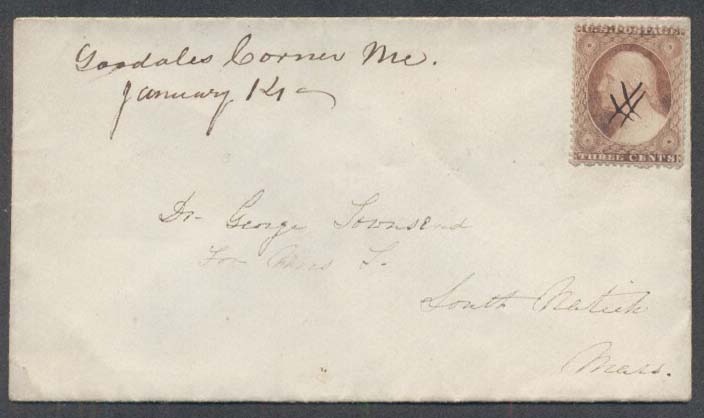 Goodales Corner Me.
January 14
U.S. POSTAGE
THREE CENTS
Dr. George Townsend
For Miss T.
South Natick
Mass.